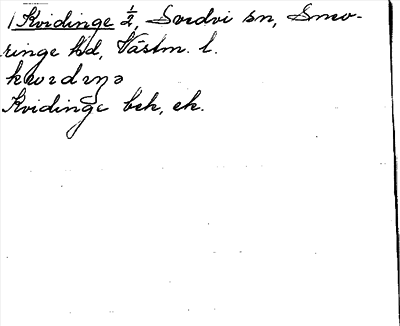 Kvidinge 1/2, Svedvi sn, Snev-
ringe hd, Västm. l.
Kvidinge bek, ek.